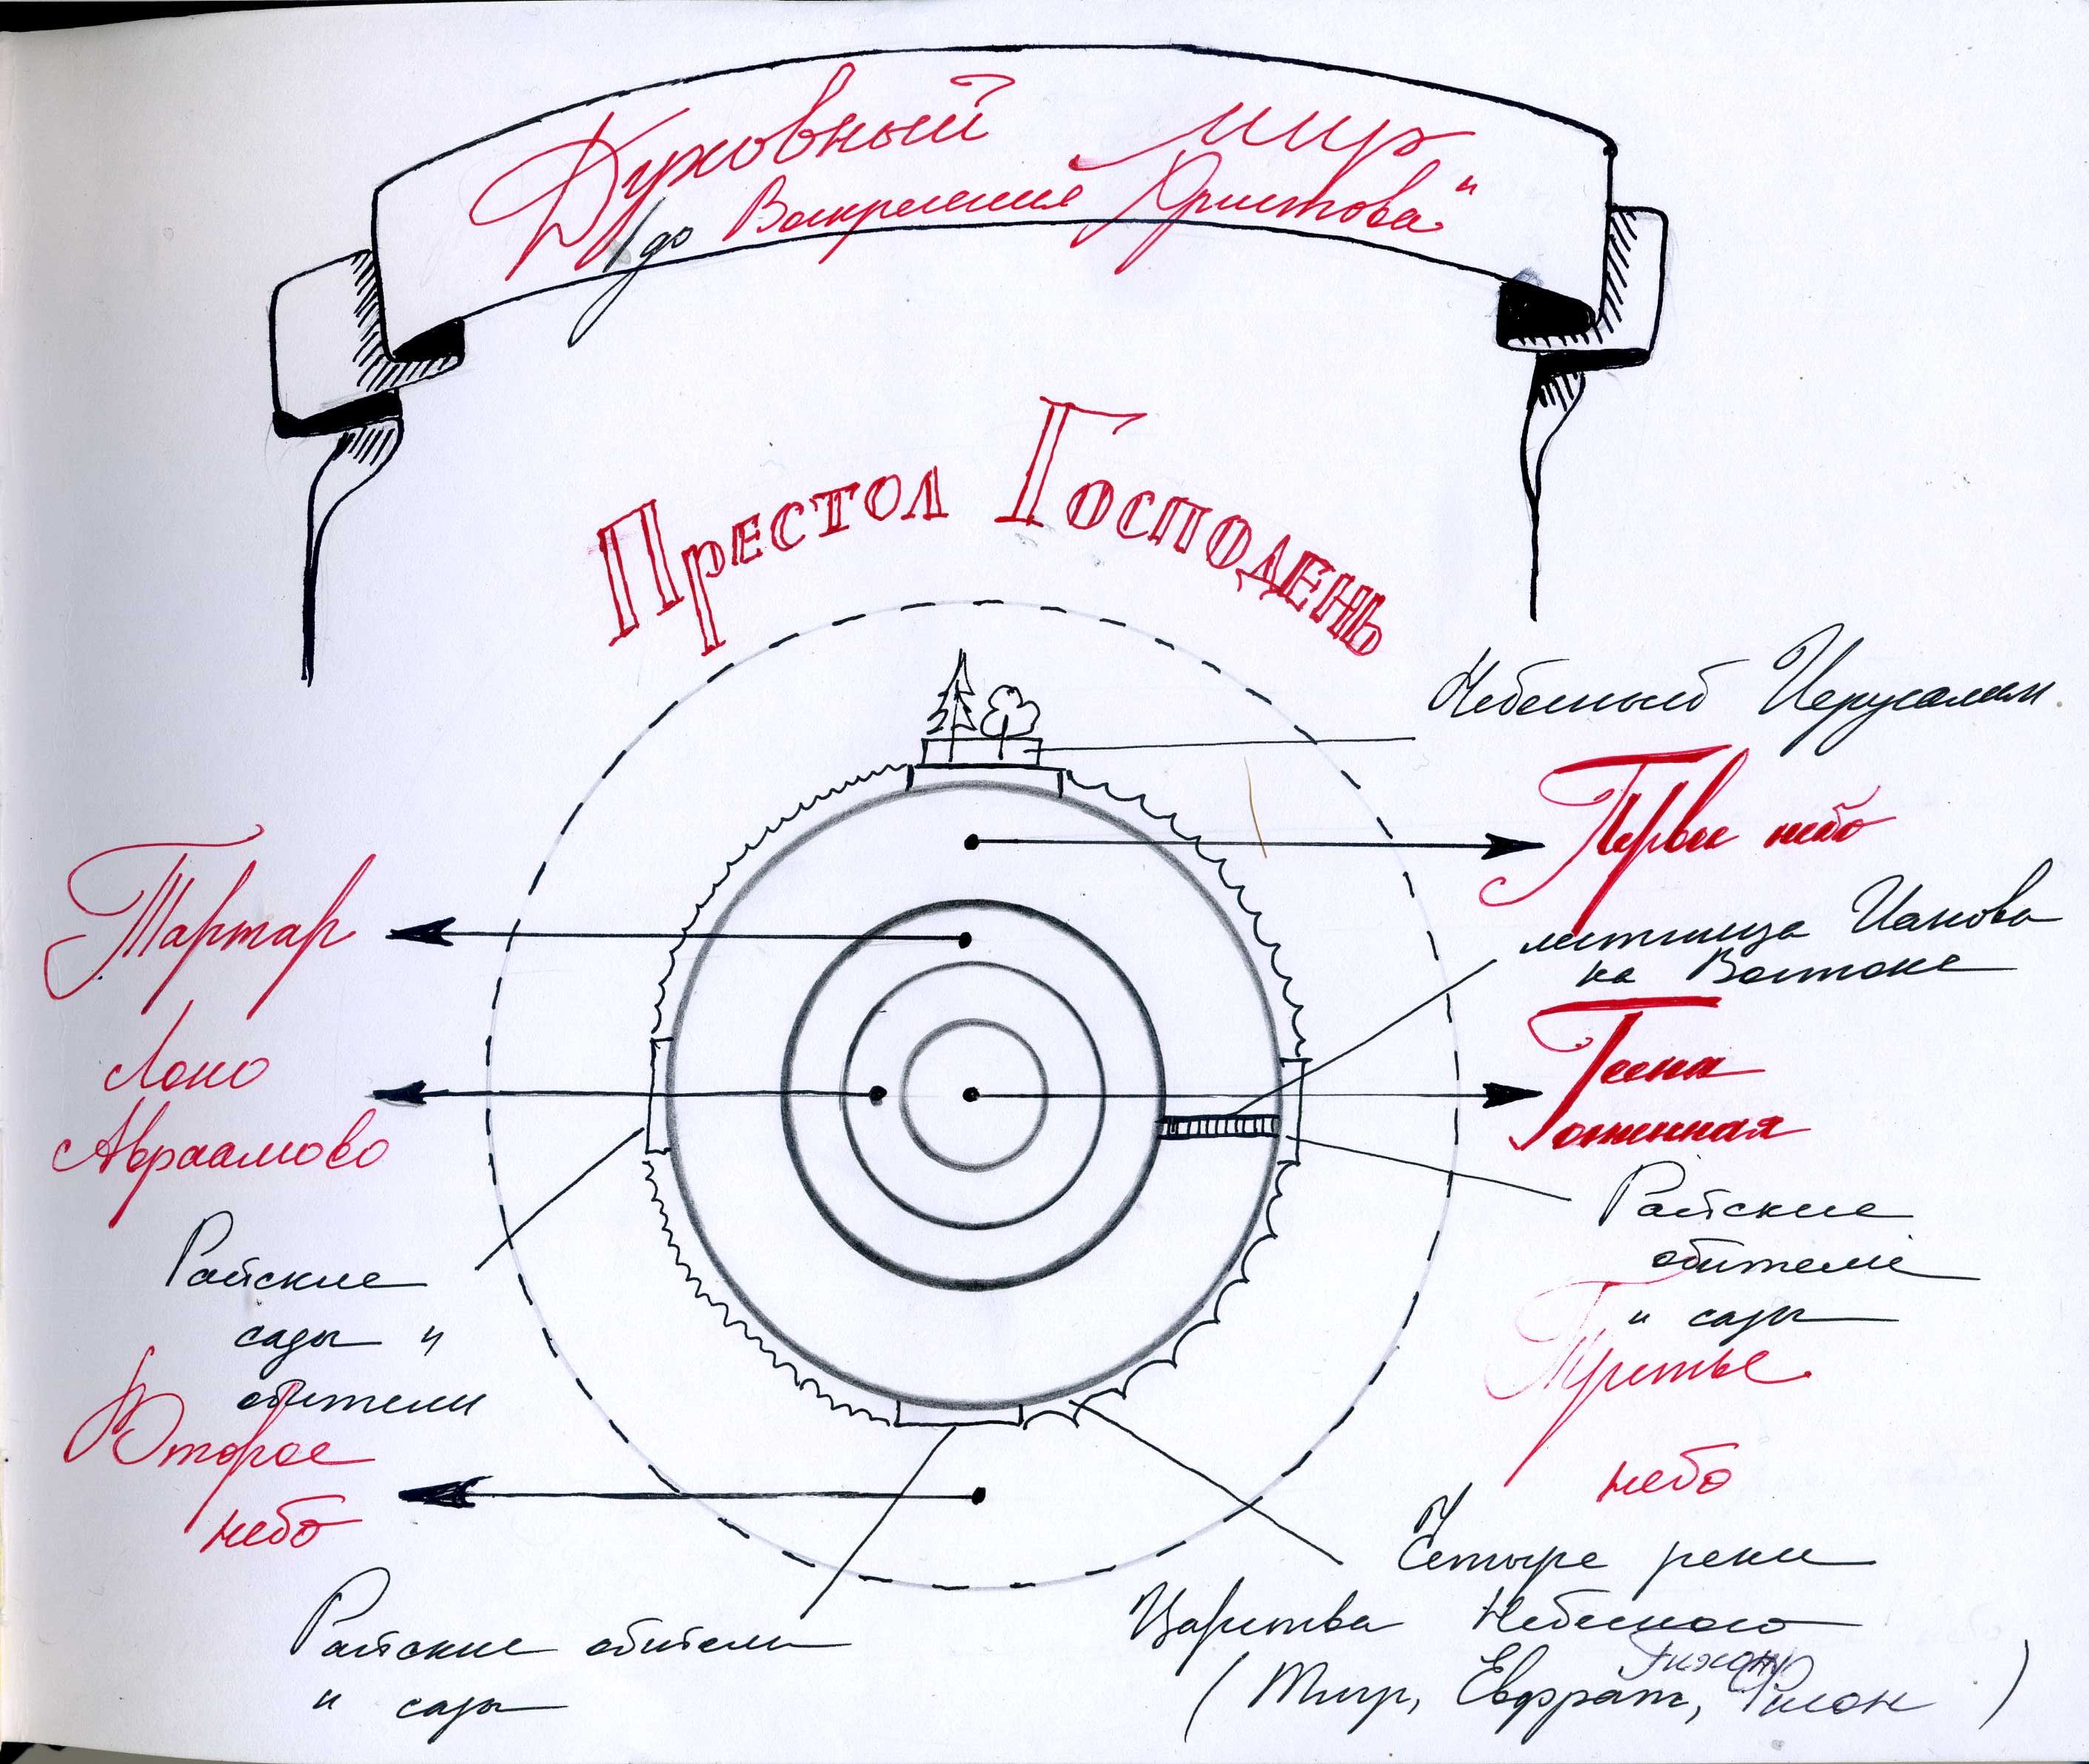 Духовный мир
"до Воскресения Христова"
Престол Господень
Небесный Иерусалим.
Первое небо
Тартар
лестница Иакова
на Востоке
Геена
огненная
Лоно
Авраамово
Райские
обители
и сады
Райские
сады и
обители
Третье
небо
Второе
небо
Четыре реки
Царства Небесного
(Тигр, Евфрат, Гихон, Фисон)
Райские обители
и сады